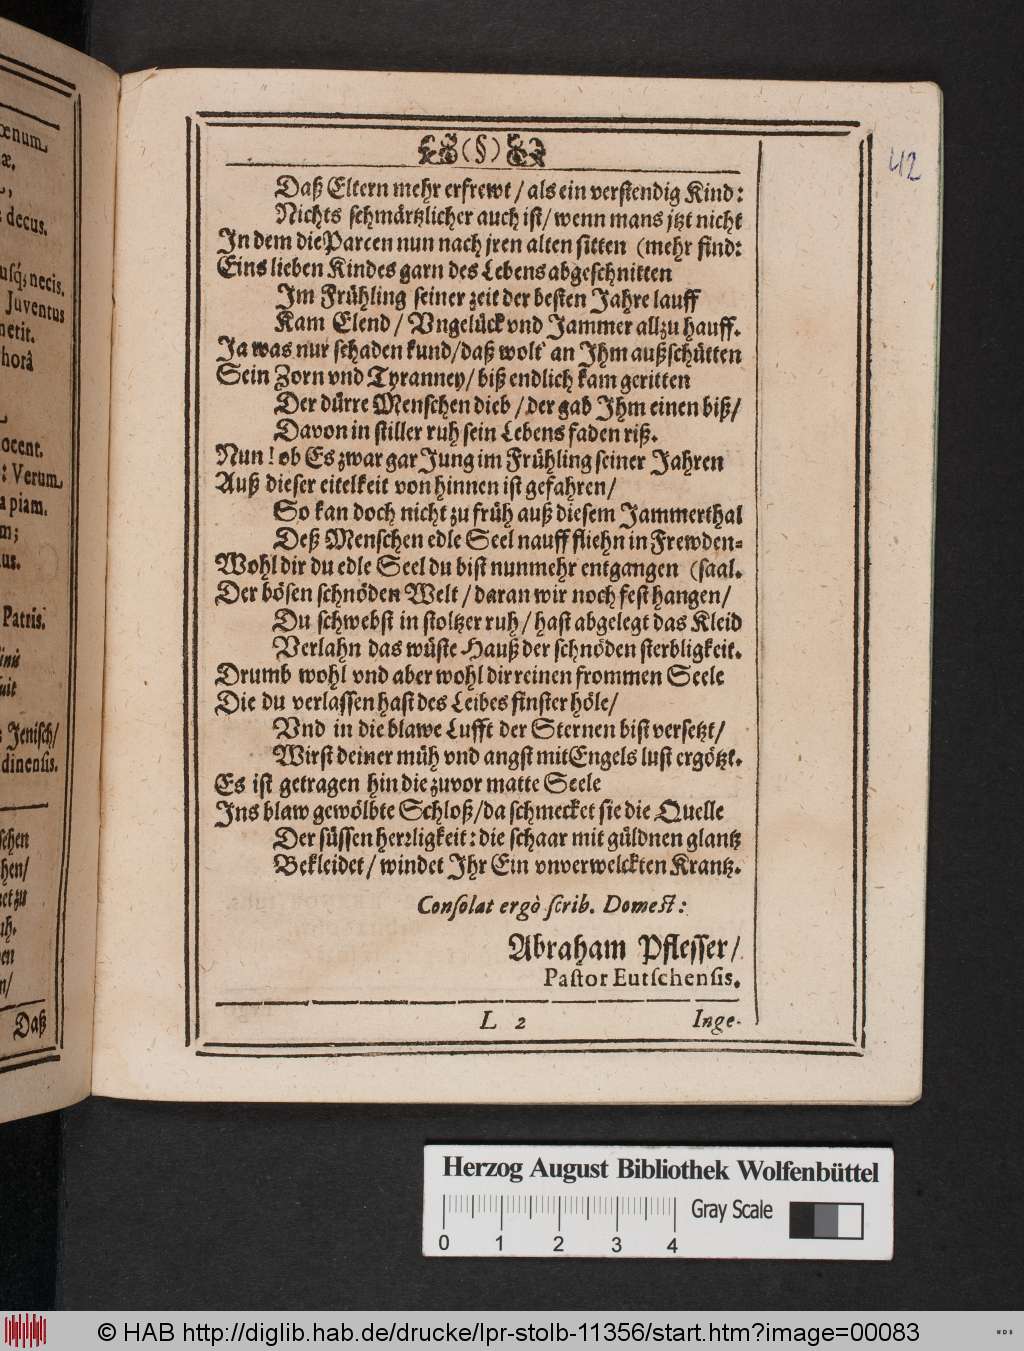 œnum
æ.
s decus.
usq́; necis.
Juventus
netit.
horâ
ocent.
: Verum
a piam.
m;
us.
Patris.
Jenisch/
dinensis.
Daß
(§)
42
Daß Eltern mehr erfrewt / als ein verstendig Kind:
Nichts schmärtzlicher auch ist / wenn mans jtzt nicht
In dem die Parcen nun nach jren alten sitten (mehr find:
Eins lieben Kindes garn des Lebens abgeschnitten
Im Frühling seiner zeit der besten Jahre lauff
Kam Elend / Vngelück vnd Jammer allzu hauff.
Ja was nur schaden kund/daß wolt' an Ihm außschütten
Sein Zorn vnd Tyranney/ biß endlich kam geritten
Der dürre Menschen dieb / der gab Ihm einen biß/
Davon in stiller ruh sein Lebens faden riß.
Nun! ob Es zwar gar Jung im Frühling seiner Jahren
Auß dieser eitelkeit von hinnen ist gefahren/
So kan doch nicht zu früh auß diesem Jammerthal
Deß Menschen edle Seel nauff fliehn in Frewden=
Wohl dir du edle Seel du bist nunmehr entgangen (saal.
Der bösen schnöden Welt / daran wir noch fest hangen/
Du schwebst in stoltzer ruh / hast abgelegt das Kleid
Verlahn das wüste Hauß der schnöden sterbligkeit.
Drumb wohl vnd aber wohl dir reinen frommen Seele
Die du verlassen hast des Leibes finster höle/
Vnd in die blawe Lufft der Sternen bist versetzt/
Wirst deiner müh vnd angst mit Engels lust ergötzt.
Es ist getragen hin die zuvor matte Seele
Ins blaw gewölbte Schloß/da schmecket sie die Quelle
Der süssen herrligkeit: die schaar mit güldnen glantz
Bekleidet / windet Ihr Ein vnverwelckten Krantz.
Consolat ergò scrib. Domest:
Abraham Pflesser/
Pastor Eutschensis.
L 2
Inge-
Herzog August Bibliothek Wolfenbüttel
Gray Scale
0 1 2 3 4
© HAB http://diglib.hab.de/drucke/lpr-stolb-11356/start.htm?image=00083